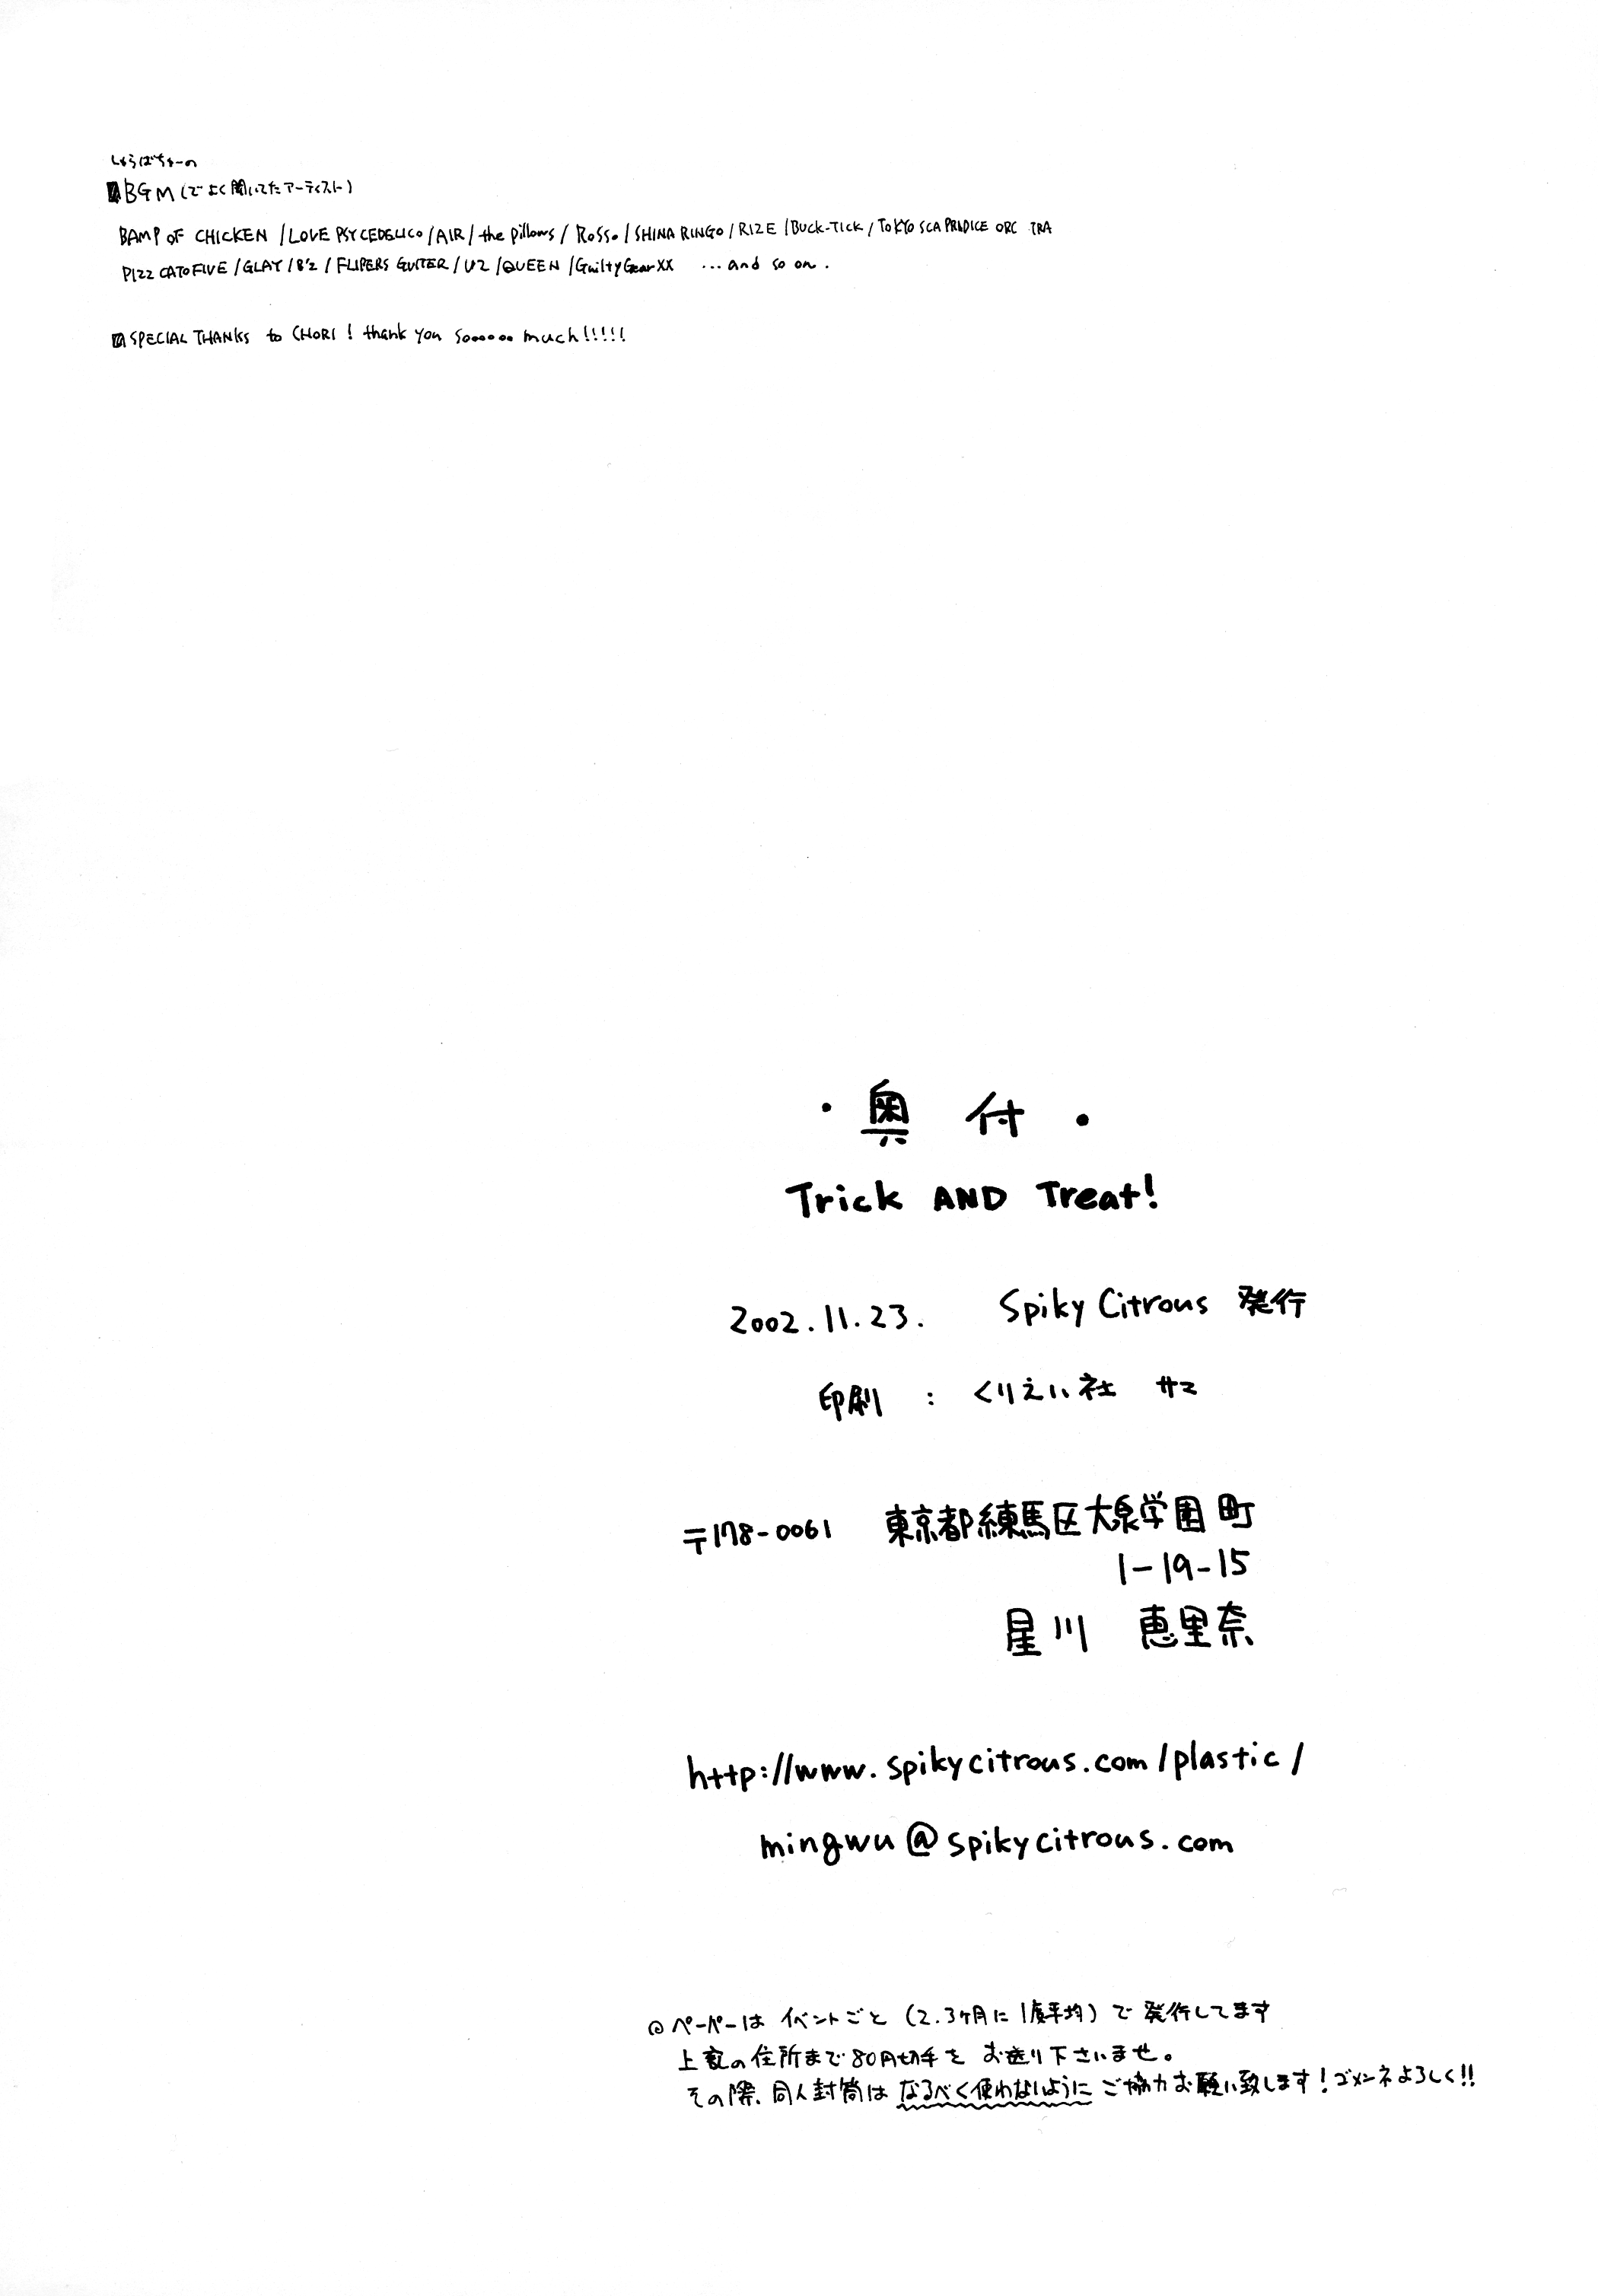 しゅらばちゅーの
BGM(でよく聞いてたアーティスト)
BAMP OF CHICKEN /LOVE PSYCEDELICO/AIR/the pillows/ Rosso/SHINA RINGO/RIZE/BUCK-TICK/TOKYO SCA PRADICE ORC TRA
PIZZ CATO FIVE/GLAY/B'z/FLIPERS GUITER/U2/QUEEN/GuiltyGearXX ...and so on.
SPECIAL THANKS to CHORI! thank you soooooo much!!!!!
・奥付・
Trick AND Treat!
2002.11.23. Spiky Citrous 発行
印刷 : くりえい社 サマ
〒178-0061 東京都練馬区大泉学園町
1-19-15
星川 恵里奈
http://www.spikycitrous.com/plastic/
mingwu@spikycitrous.com
◎ペーパーは イベントごと(2.3ヶ月に1度平均)で 発行してます
上記の住所まで80円切手を お送り下さいませ。
その際、同人封筒は なるべく使わないように ご協力お願い致します!ゴメンネよろしく!!